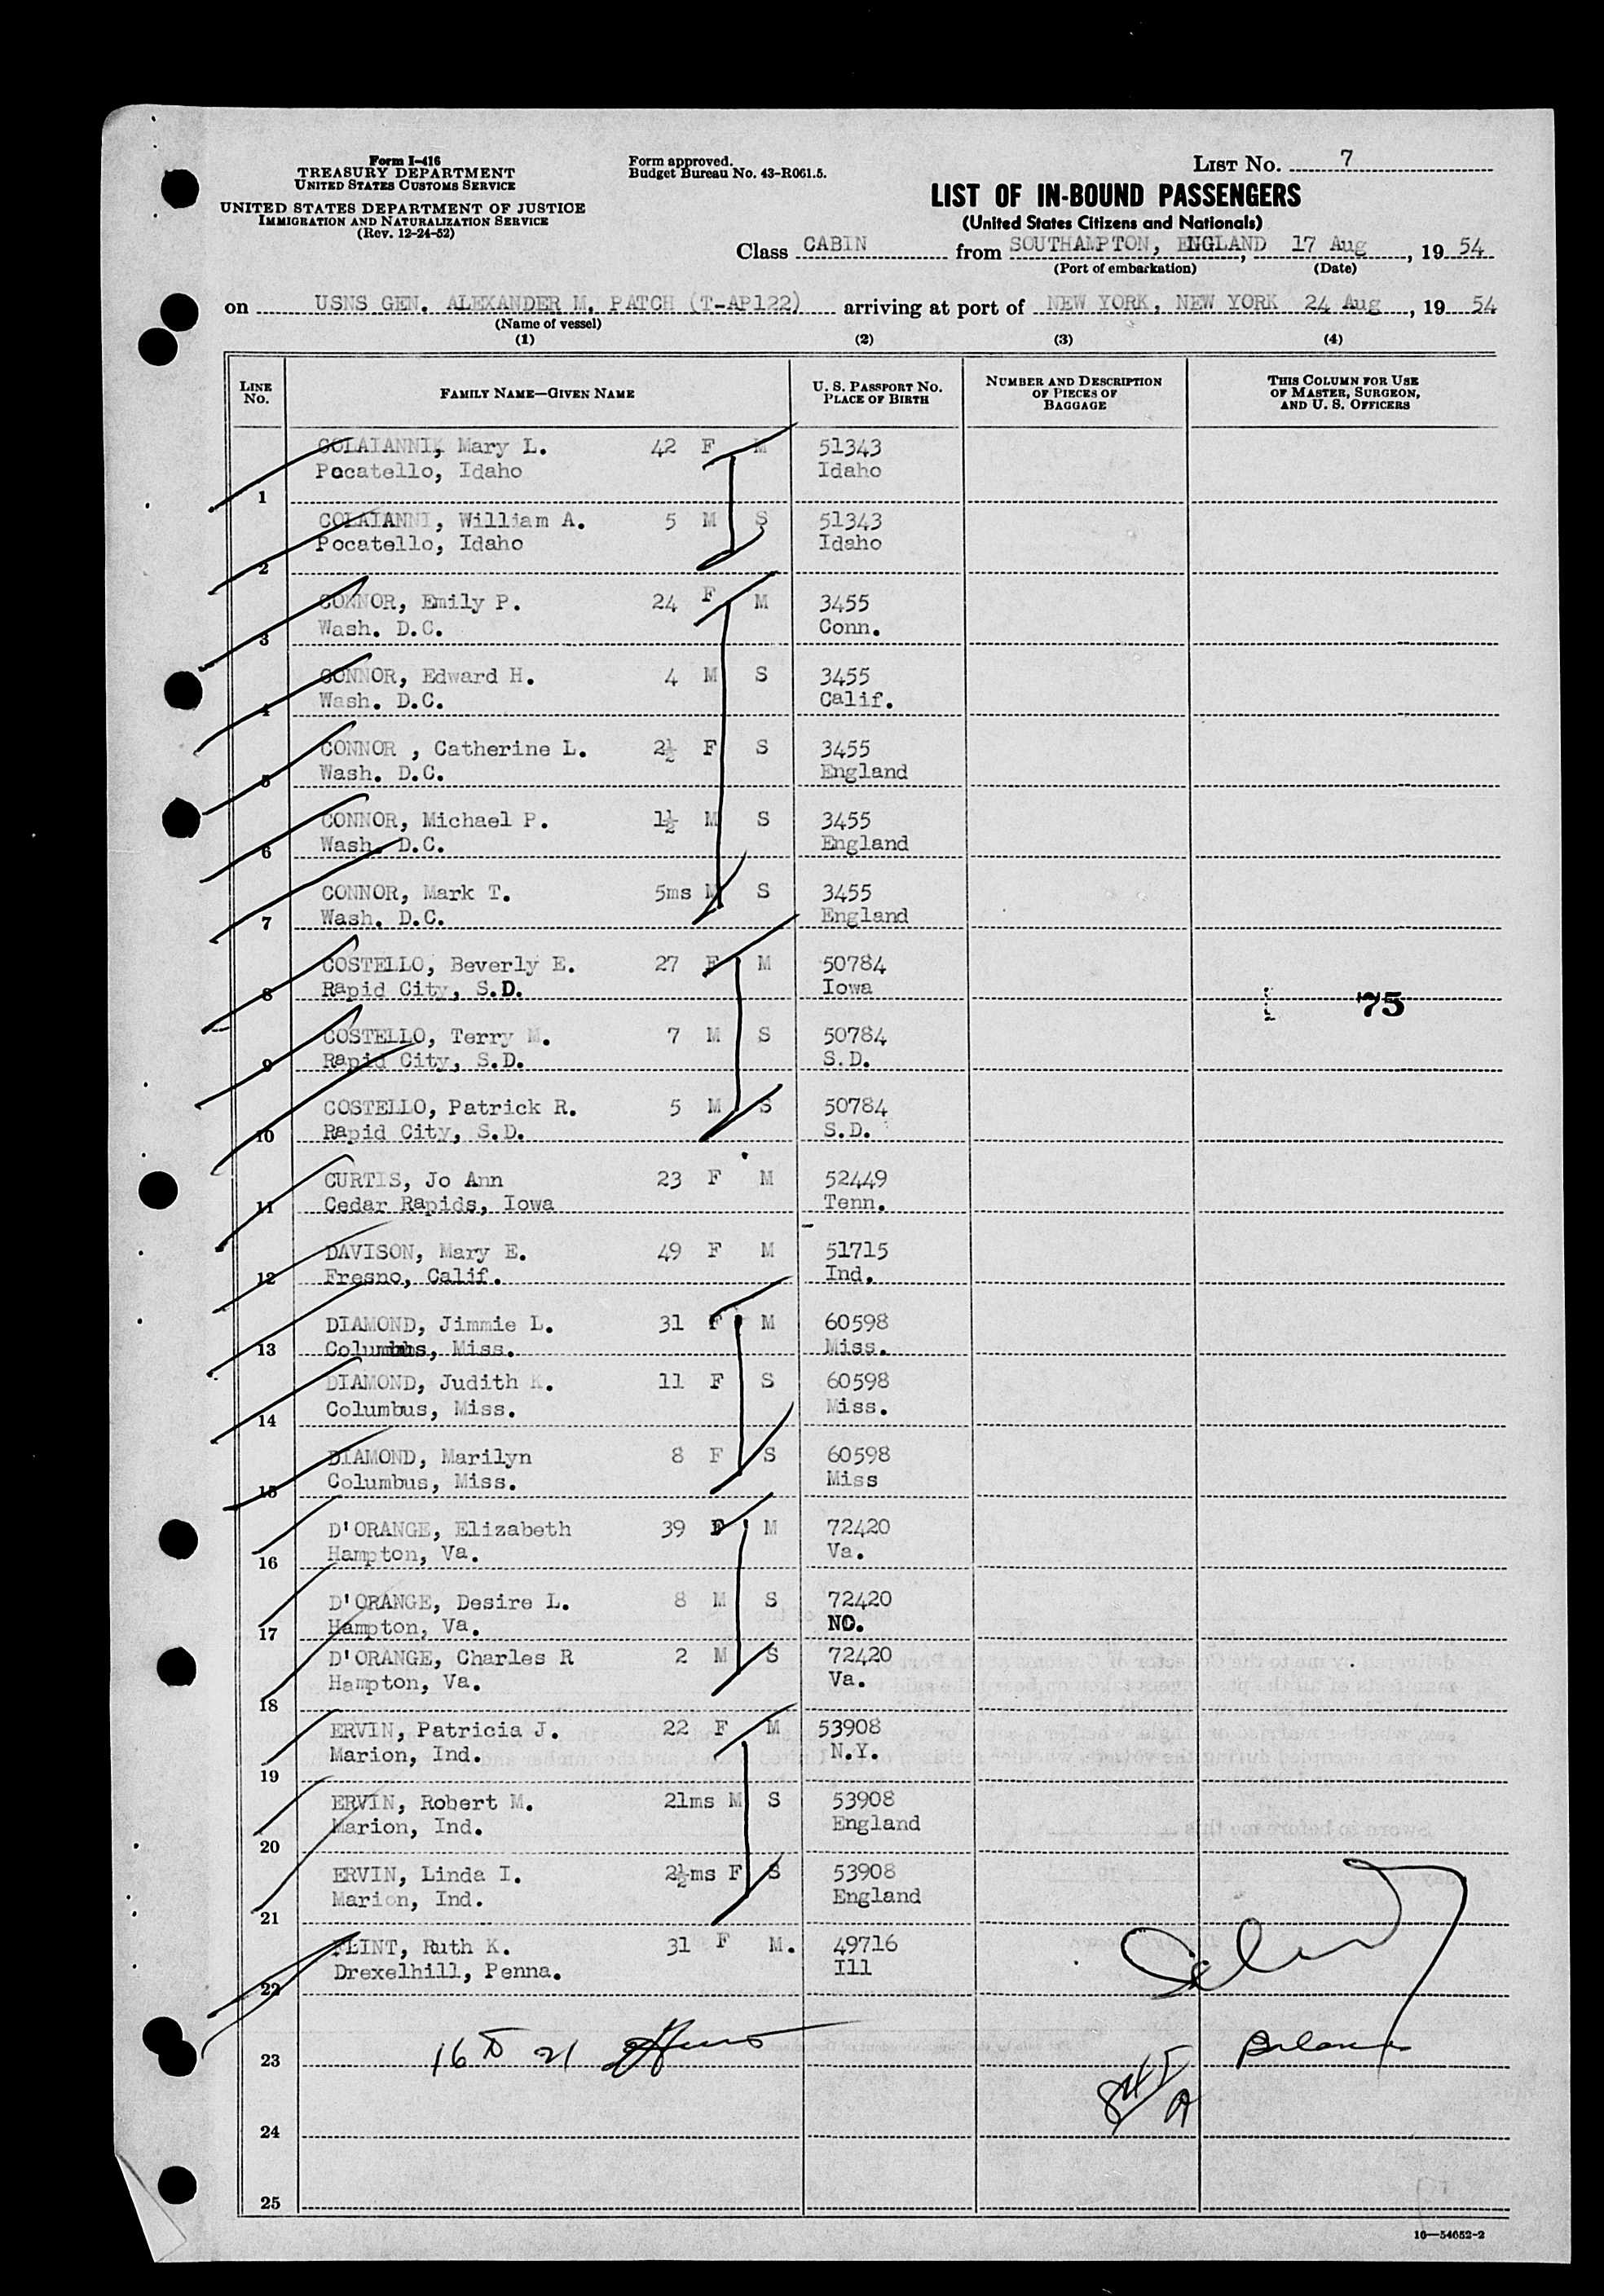 Form I-416
TREASURY DEPARTMENT
UNITED STATES CUSTOMS SERVICE
UNITED STATES DEPARTMENT OF JUSTICE
IMMIGRATION AND NATURALIZATION SERVICE
(Rev. 12-24-52)
Form approved.
Budget Bureau No. 43-R061.5.
LIST NO. 7
LIST OF IN-BOUND PASSENGERS
(United States Citizens and Nationals)
Class CABIN from SOUTHAMPTON, ENGLAND, 17 Aug, 19 54
(Port of embarkation) (Date)
on USNS GEN. ALEXANDER M. PATCH (T-AP122) arriving at port of NEW YORK, NEW YORK 24 Aug, 19 54
(Name of vessel)
(1) (2) (3) (4)
LINE NO. FAMILY NAME—GIVEN NAME U. S. PASSPORT NO. PLACE OF BIRTH NUMBER AND DESCRIPTION OF PIECES OF BAGGAGE THIS COLUMN FOR USE OF MASTER, SURGEON, AND U. S. OFFICERS
COLAIANNI, Mary L. 42 F M 51343
Pocatello, Idaho Idaho
1
COLAIANNI, William A. 5 M S 51343
Pocatello, Idaho Idaho
2
CONNOR, Emily P. 24 F M 3455
Wash. D.C. Conn.
3
CONNOR, Edward H. 4 M S 3455
Wash. D.C. Calif.
4
CONNOR , Catherine L. 2½ F S 3455
Wash. D.C. England
5
CONNOR, Michael P. 1½ M S 3455
Wash. D.C. England
6
CONNOR, Mark T. 5ms M S 3455
Wash. D.C. England
7
COSTELLO, Beverly E. 27 F M 50784
Rapid City, S.D. Iowa
8 75
COSTELLO, Terry M. 7 M S 50784
Rapid City, S.D. S.D.
9
COSTELLO, Patrick R. 5 M S 50784
Rapid City, S.D. S.D.
10
CURTIS, Jo Ann 23 F M 52449
Cedar Rapids, Iowa Tenn.
11
DAVISON, Mary E. 49 F M 51715
Fresno, Calif. Ind.
12
DIAMOND, Jimmie L. 31 F M 60598
13 Columbus, Miss. Miss.
DIAMOND, Judith K. 11 F S 60598
Columbus, Miss. Miss.
14
DIAMOND, Marilyn 8 F S 60598
Columbus, Miss. Miss
15
D'ORANGE, Elizabeth 39 F M 72420
Hampton, Va. Va.
16
D'ORANGE, Desire L. 8 M S 72420
Hampton, Va. NO.
17
D'ORANGE, Charles R 2 M S 72420
Hampton, Va. Va.
18
ERVIN, Patricia J. 22 F M 53908
Marion, Ind. N.Y.
19
ERVIN, Robert M. 21ms M S 53908
Marion, Ind. England
20
ERVIN, Linda I. 2½ms F S 53908
Marion, Ind. England
21
FLINT, Ruth K. 31 F M. 49716
Drexelhill, Penna. Ill
22
16 21
23
24
25
16—54652-2